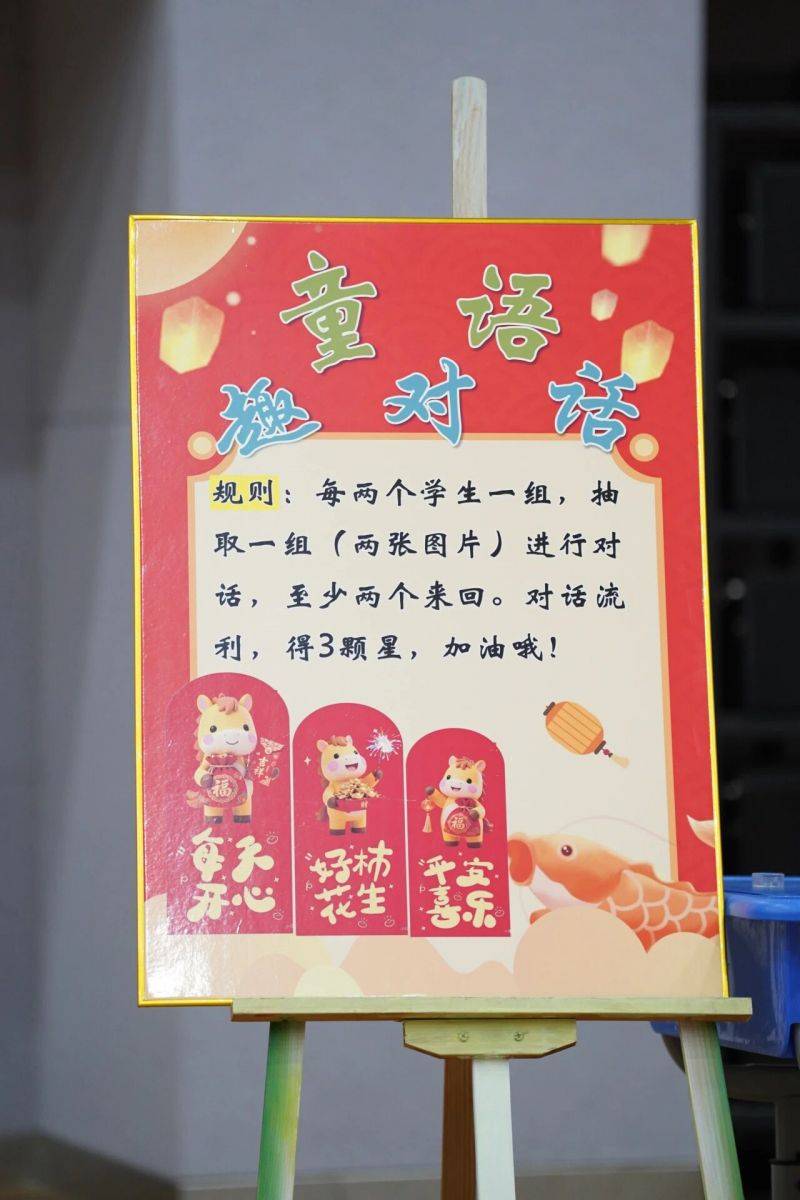 童语
趣对话
规则：每两个学生一组，抽
取一组（两张图片）进行对
话，至少两个来回。对话流
利，得3颗星，加油哦！
吉祥
福
每天
开心
好柿
花生
福
平安
喜乐